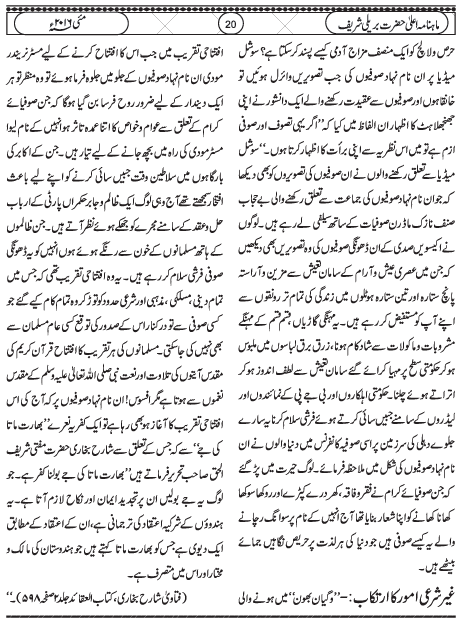 ماہنامہ اعلیٰ حضرت بریلی شریف
20
مئی ۲۰۱۶ء
حرص و لالچ کو ایک منصف مزاج آدمی کیسے پسند کر سکتا ہے؟ سوشل
میڈیا پر ان نام نہاد صوفیوں کی جب تصویریں وائرل ہوئیں تو
خانقاہوں اور صوفیوں سے عقیدت رکھنے والے ایک دانشور نے اپنی
جھنجھلاہٹ کا اظہار ان الفاظ میں کیا کہ ”اگر یہی تصوف اور صوفی
ازم ہے تو میں اس نظریہ سے اپنی برأت کا اظہار کرتا ہوں۔“ سوشل
میڈیا سے تعلق رکھنے والوں نے ان صوفیوں کی تصویروں کو بھی دیکھا
کہ جو ان نام نہاد صوفیوں کی جماعت سے تعلق رکھنے والی بے حجاب
صنف نازک ماڈرن صوفیات کے ساتھ سیلفی لے رہے ہیں۔ لوگوں
نے اکیسویں صدی کے ان ڈھونگی صوفیوں کی وہ تصویریں بھی دیکھیں
کہ جن میں عصری عیش و آرام کے سامان تعیش سے مزین و آراستہ
پانچ ستارہ اور تین ستارہ ہوٹلوں میں زندگی کی تمام تر رونقوں سے
اپنے آپ کو مستفیض کر رہے ہیں۔ یہ مہنگی گاڑیاں، قسم قسم کے مہنگے
مشروبات و ماکولات سے شاد کام ہونا، زرق برق لباسوں میں ملبوس
ہو کر حکومتی سطح پر مہیا کرائے گئے سامان تعیش سے لطف اندوز ہو کر
اتراتے ہوئے چلنا، حکومتی اہلکاروں اور بی جے پی کے نمائندوں اور
لیڈروں کے سامنے جبیں سائی کرتے ہوئے فرشی سلام کرنا یہ سارے
جلوے دہلی کی سرزمین پر اسی صوفیہ کانفرنس میں دنیا والوں نے ان
نام نہاد صوفیوں کی شکل میں ملاحظہ فرمائے۔ لوگ حیرت میں پڑ گئے
کہ جن صوفیائے کرام نے فقر و فاقہ، کھردرے کپڑے اور روکھا سوکھا
کھانا کھانے کو اپنا شعار بنایا تھا آج انہیں کے نام پر سوانگ رچانے
والے یہ کیسے صوفی ہیں جو دنیا کی ہر لذت پر حریص نگاہیں جمائے
بیٹھے ہیں۔
غیر شرعی امور کا ارتکاب:- ”وگیان بھون“ میں ہونے والی
افتتاحی تقریب میں جب اس کا افتتاح کرنے کے لیے مسٹر نریندر
مودی ان نام نہاد صوفیوں کے جلو میں جلوہ فرما ہوئے تو وہ منظر تو ہر
ایک دیندار کے لیے ضرور روح فرسا بن گیا ہوگا کہ جن صوفیائے
کرام کے تعلق سے عوام و خواص کا اتنا عمدہ تاثر ہو انہیں کے نام لیوا
مسٹر مودی کی راہ میں بچھ جانے کے لیے تیار ہیں۔ جن کے اکابر کی
بارگاہوں میں سلاطین وقت جبیں سائی کرنے کو اپنے لیے باعث
افتخار سمجھتے تھے آج وہی لوگ ایک ظالم و جابر حکمراں پارٹی کے ارباب
حل و عقد کے سامنے مجرے کو جھکے ہوئے نظر آتے ہیں۔ جن ظالموں
کے ہاتھ مسلمانوں کے خون سے رنگے ہوئے ہوں انہیں کو یہ ڈھونگی
صوفی فرشی سلام کر رہے ہیں۔ یہ وہ افتتاحی تقریب تھی کہ جس میں
تمام دینی، مسلکی، مذہبی اور شرعی حدود کو توڑ کر وہ تمام کام کیے گئے جو
کسی صوفی سے تو درکنار اس کے صدور کی توقع کسی عام مسلمان سے
بھی نہیں کی جا سکتی۔ مسلمانوں کی ہر تقریب کا افتتاح قرآن کریم کی
مقدس آیتوں کی تلاوت اور نعت نبی صلی اللہ تعالیٰ علیہ وسلم کے مقدس
نغموں سے ہوتا ہے مگر افسوس! ان نام نہاد صوفیوں پر کہ آج کی اس
افتتاحی تقریب کا آغاز ہو بھی رہا ہے تو ایک کفریہ نعرے ”بھارت ماتا
کی جے“ سے کہ جس کے تعلق سے شارح بخاری حضرت مفتی شریف
الحق صاحب تحریر فرماتے ہیں ”بھارت ماتا کی جے بولنا کفر ہے۔ جو
لوگ یہ جے بولیں ان پر تجدید ایمان اور نکاح لازم آتا ہے۔ یہ
ہندوؤں کے شرکیہ اعتقاد کی ترجمانی ہے، ان کے اعتقاد کے مطابق
ایک دیوی ہے جس کو بھارت ماتا کہتے ہیں جو ہندوستان کی مالک و
مختار اور اس میں متصرف ہے۔
(فتاویٰ شارح بخاری، کتاب العقائد جلد ۲ صفحہ ۵۹۸)۔“